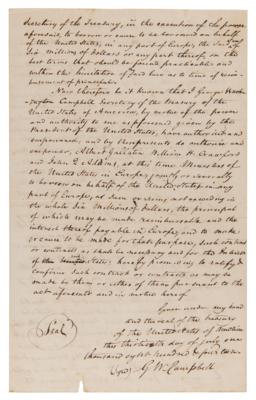 Secretary of the Treasury, in the execution of the powers
aforesaid, to borrow or cause to be borrowed on behalf
of the United States, in any part of Europe, the sum of
Six millions of dollars or any part thereof, on the
best terms that should be found practicable and
within the limitation of said laws as to time of reim-
bursement of principal.
Now therefore be it known that I George Wash-
ington Campbell Secretary of the Treasury of the
United States of America, by virtue of the power
and authority to me as aforesaid given by the
President of the United States, have authorised and
empowered, and by these presents do authorise and
empower, Albert Gallatin William H. Crawford
and John Q. Adams, at this time Ministers of
the United States in Europe, jointly or severally
to borrow on behalf of the United States in any
part of Europe, a sum or sums not exceeding in
the whole Six Millions of dollars, the principal
of which may be made reimbursable and the
interest thereof payable in Europe; and to make
or cause to be made for that purpose, such contract
or contracts as shall be necessary and for the Interest
of the United States; hereby promising to ratify &
confirm such contract or contracts as may be
made by them or either of them pursuant to the
act aforesaid and in virtue hereof
Given under my hand
and the seal of the treasury
of the United States of America
this thirtieth day of July one
thousand eight hundred & fourteen
Seal
G W. Campbell